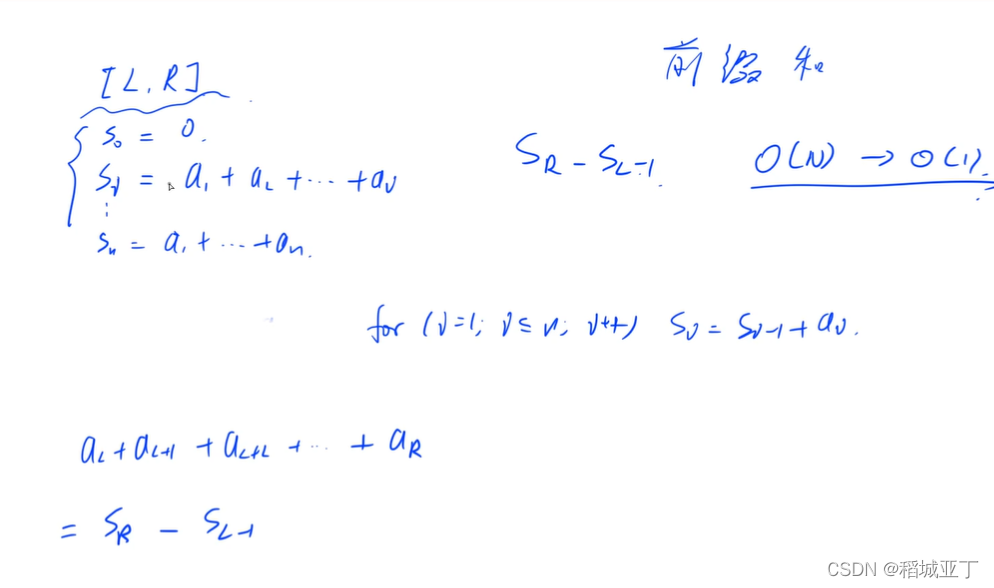 前缀和
[L, R]
S₀ = 0.
Sᵢ = a₁ + a₂ + ... + aᵢ
⋮
Sₙ = a₁ + ... + aₙ.
S_R - S_{L-1}.
O(N) → O(1).
for (i=1; i≤n; i++) Sᵢ = Sᵢ₋₁ + aᵢ.
a_L + a_{L+1} + a_{L+2} + ... + a_R
= S_R - S_{L-1}
CSDN @稻城亚丁